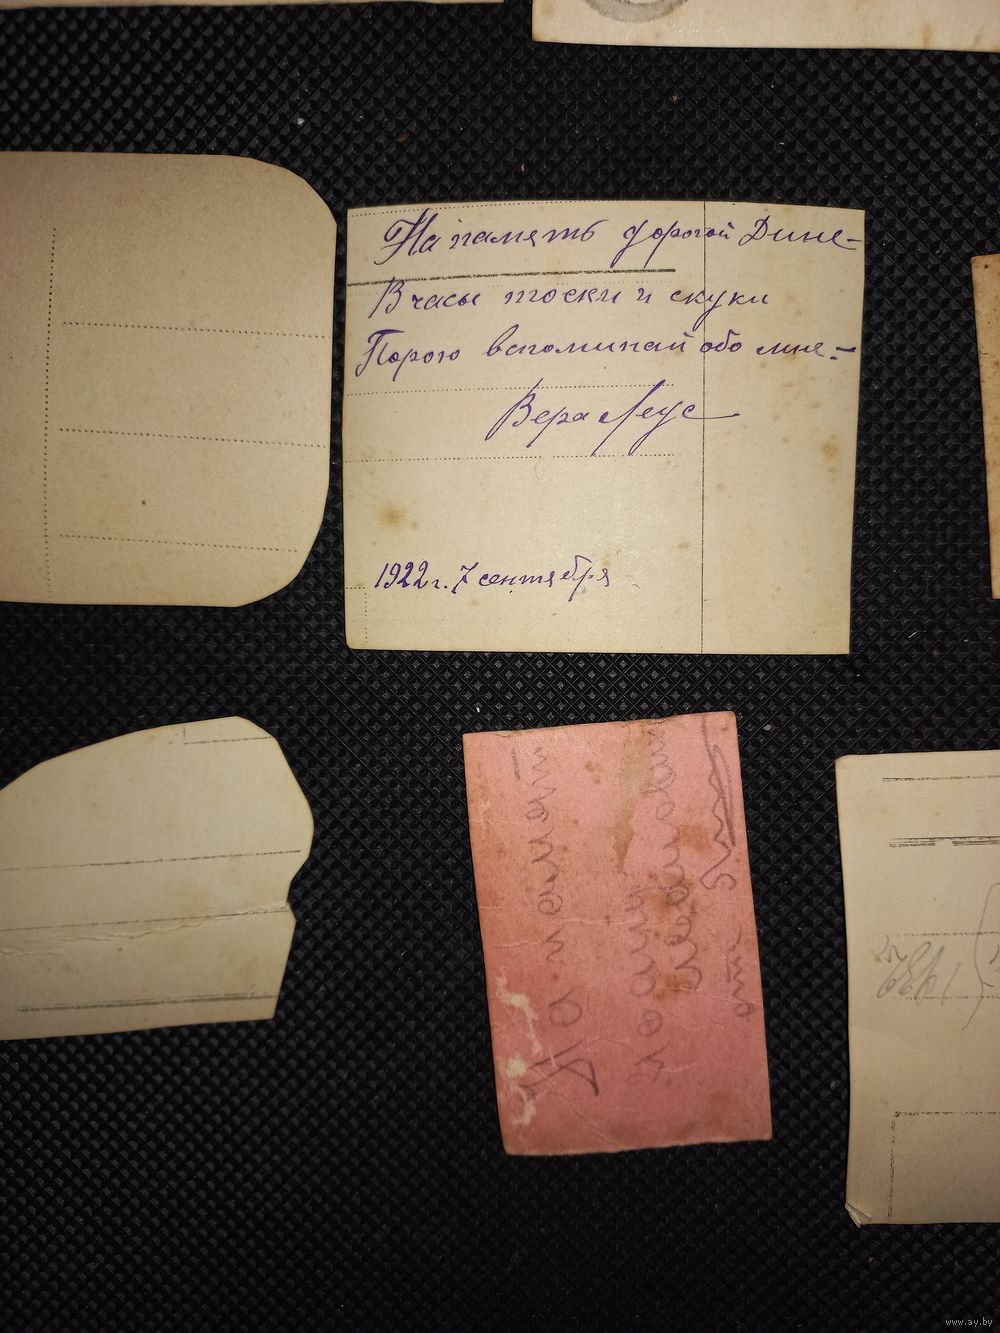 На память дорогой Дине-
В часы тоски и скуки
Порою вспоминай обо мне.-
Вера Леус
1922 г. 7 сентября
На память
от
www.ay.by